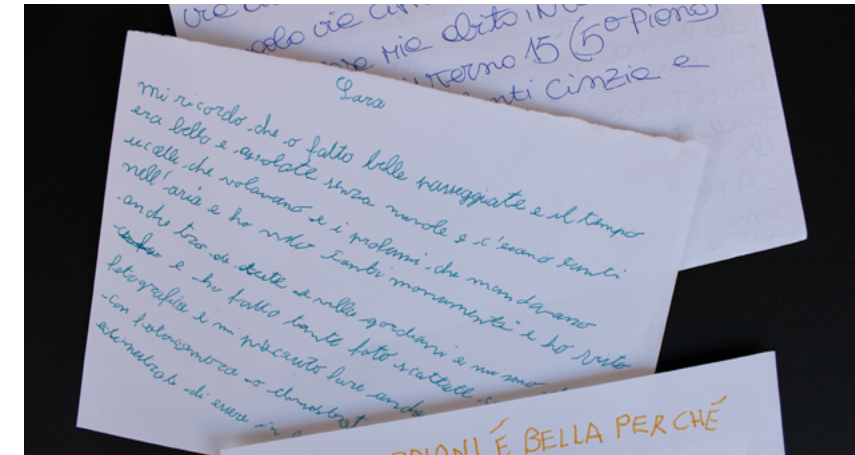 vie
solo vie
mie abito IN
INTERNO 15 (5º PIENO)
nti CINZIE e
Lara
mi ricordo che o fatto belle passeggiate e il tempo
era bello e assolate senza nuvole e c'erano tanti
uccelli che volavano e i profumi che mandavano
nell'aria e ho visto tanti monumenti e ho visto
anche toro de e villa gordiani e mi sono
e ho fatto tante foto scattate
fotografica e mi piacauto fare anche
con fotocamera o dimostrat
di essere in
É BELLA PERCHÉ